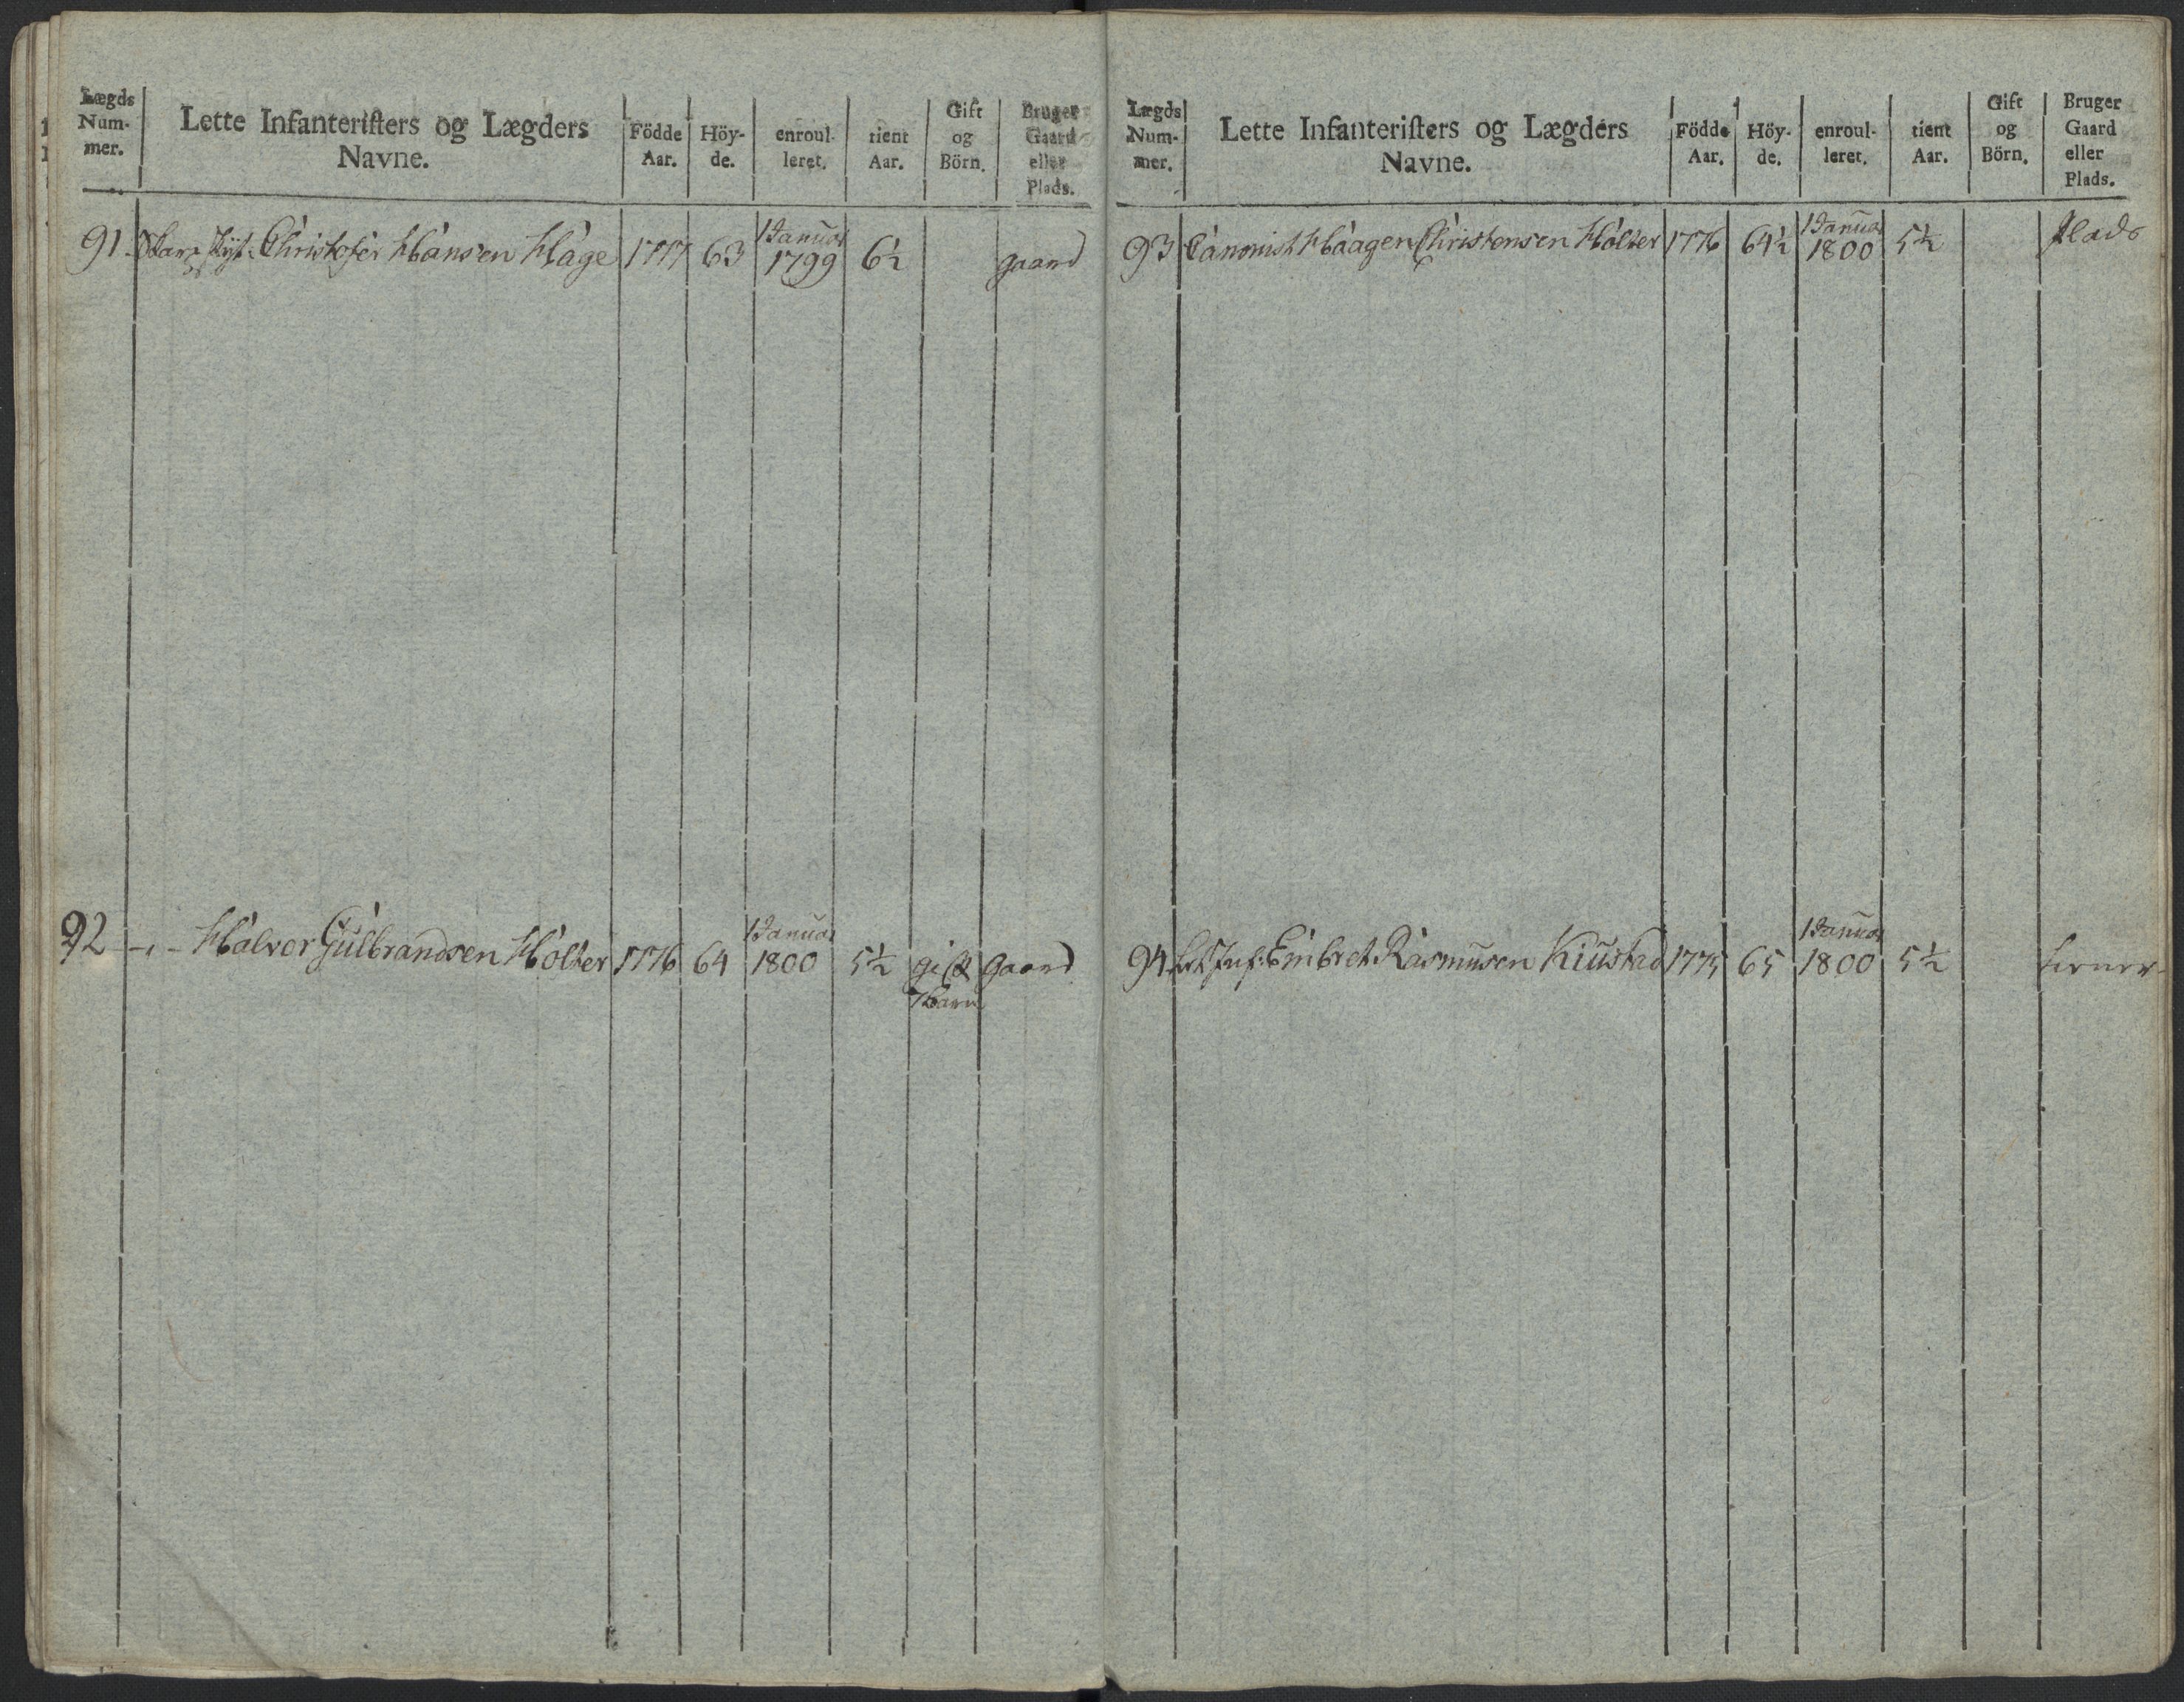 Lægds Num- mer. | Lette Infanteristers og Lægders Navne. | Födde Aar. | Höy- de. | enroul- leret. | tient Aar. | Gift og Börn. | Bruger Gaard eller Plads.
91. Christofer Hansen Hage 1777 63 1 Januar 1799 6½ gaard
92 -"- Halvor Gulbrandsen Holter 1776 64 1 Januar 1800 5½ gift 1 barn gaard
Lægds Num- mer. | Lette Infanteristers og Lægders Navne. | Födde Aar. | Höy- de. | enroul- leret. | tient Aar. | Gift og Börn. | Bruger Gaard eller Plads.
93 Canonist Haagen Christensen Holter 1776 64½ 1 Janua 1800 5½ Plads
94 Inf: Embret Rasmusen Kiustad 1775 65 1 Januar 1800 5½